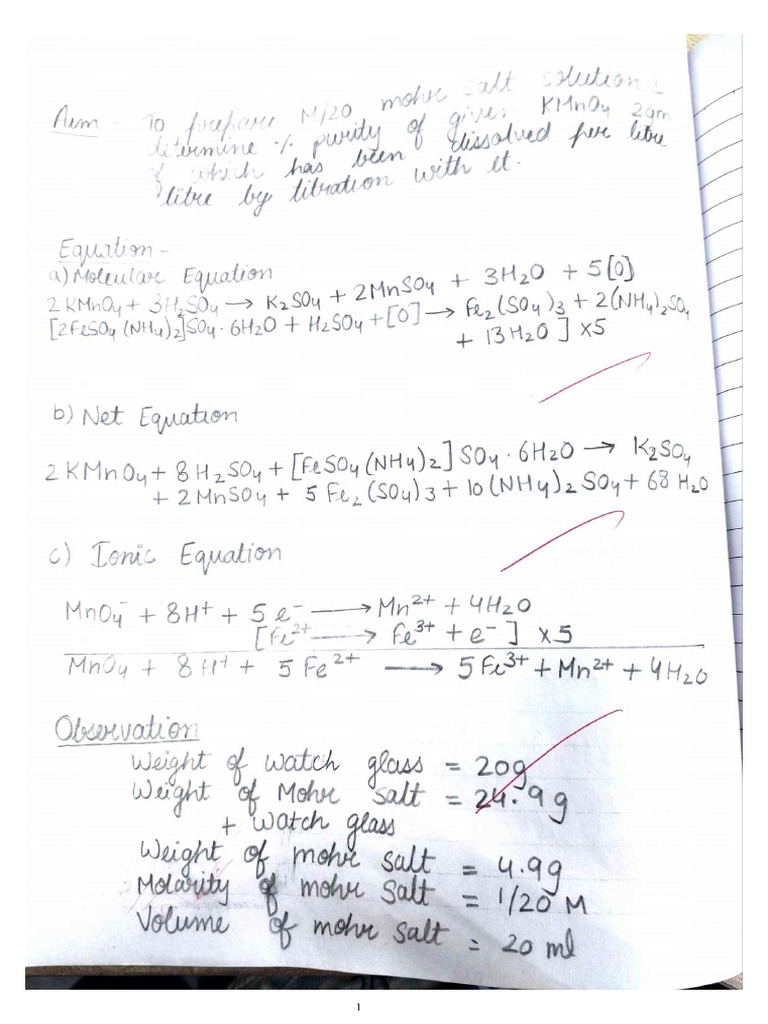 Aim - To prepare M/20 mohr salt solution &
determine % purity of given KMnO4 2gm
of which has been dissolved per litre
litre by titration with it.
Equation -
a) Molecular Equation
2 KMnO4 + 3H2SO4 → K2SO4 + 2MnSO4 + 3H2O + 5[O]
[2FeSO4 (NH4)2]SO4·6H2O + H2SO4 + [O] → Fe2(SO4)3 + 2(NH4)2SO4
+ 13H2O ] x5
b) Net Equation
2 KMnO4 + 8H2SO4 + [FeSO4(NH4)2]SO4·6H2O → K2SO4
+ 2MnSO4 + 5Fe2(SO4)3 + 10(NH4)2SO4 + 68 H2O
c) Ionic Equation
MnO4- + 8H+ + 5e- → Mn2+ + 4H2O
[Fe2+ → Fe3+ + e-] x5
MnO4 + 8H+ + 5Fe2+ → 5Fe3+ + Mn2+ + 4H2O
Observation
Weight of watch glass = 20g
Weight of Mohr salt = 24.9g
+ watch glass
Weight of mohr salt = 4.9g
Molarity of mohr salt = 1/20 M
Volume of mohr salt = 20 ml
1